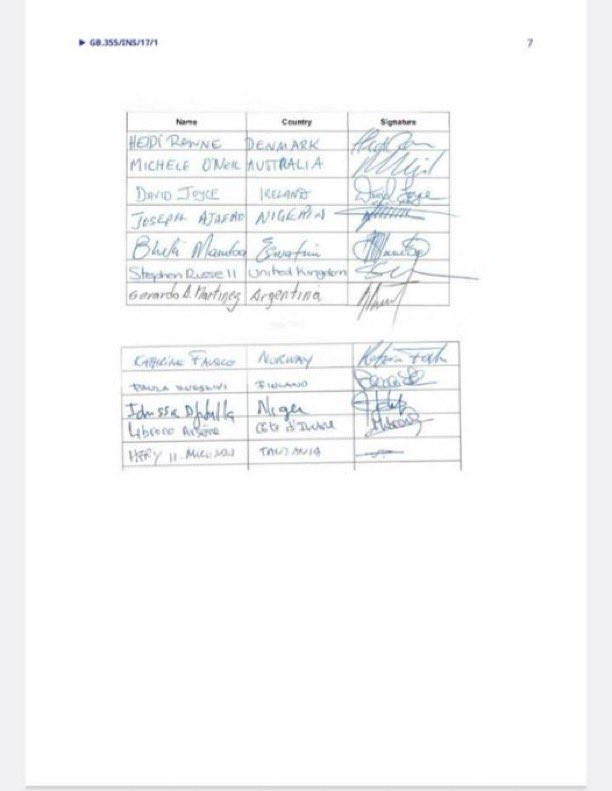 ► GB.355/INS/17/1 7
Name Country Signature
HEIDI RØNNE DENMARK
MICHELE O'NEIL AUSTRALIA
DAVID JOYCE IRELAND
JOSEPH AJAERO NIGERIA
Bheki Mamba Eswatini
Stephen Russell United Kingdom
Gerardo A. Martinez Argentina
KATHRINE FAUSKE NORWAY
PAULA FINLAND
Idrissa Djibrilla Niger
Arsène Côte d'Ivoire
HERY H. TANZANIA